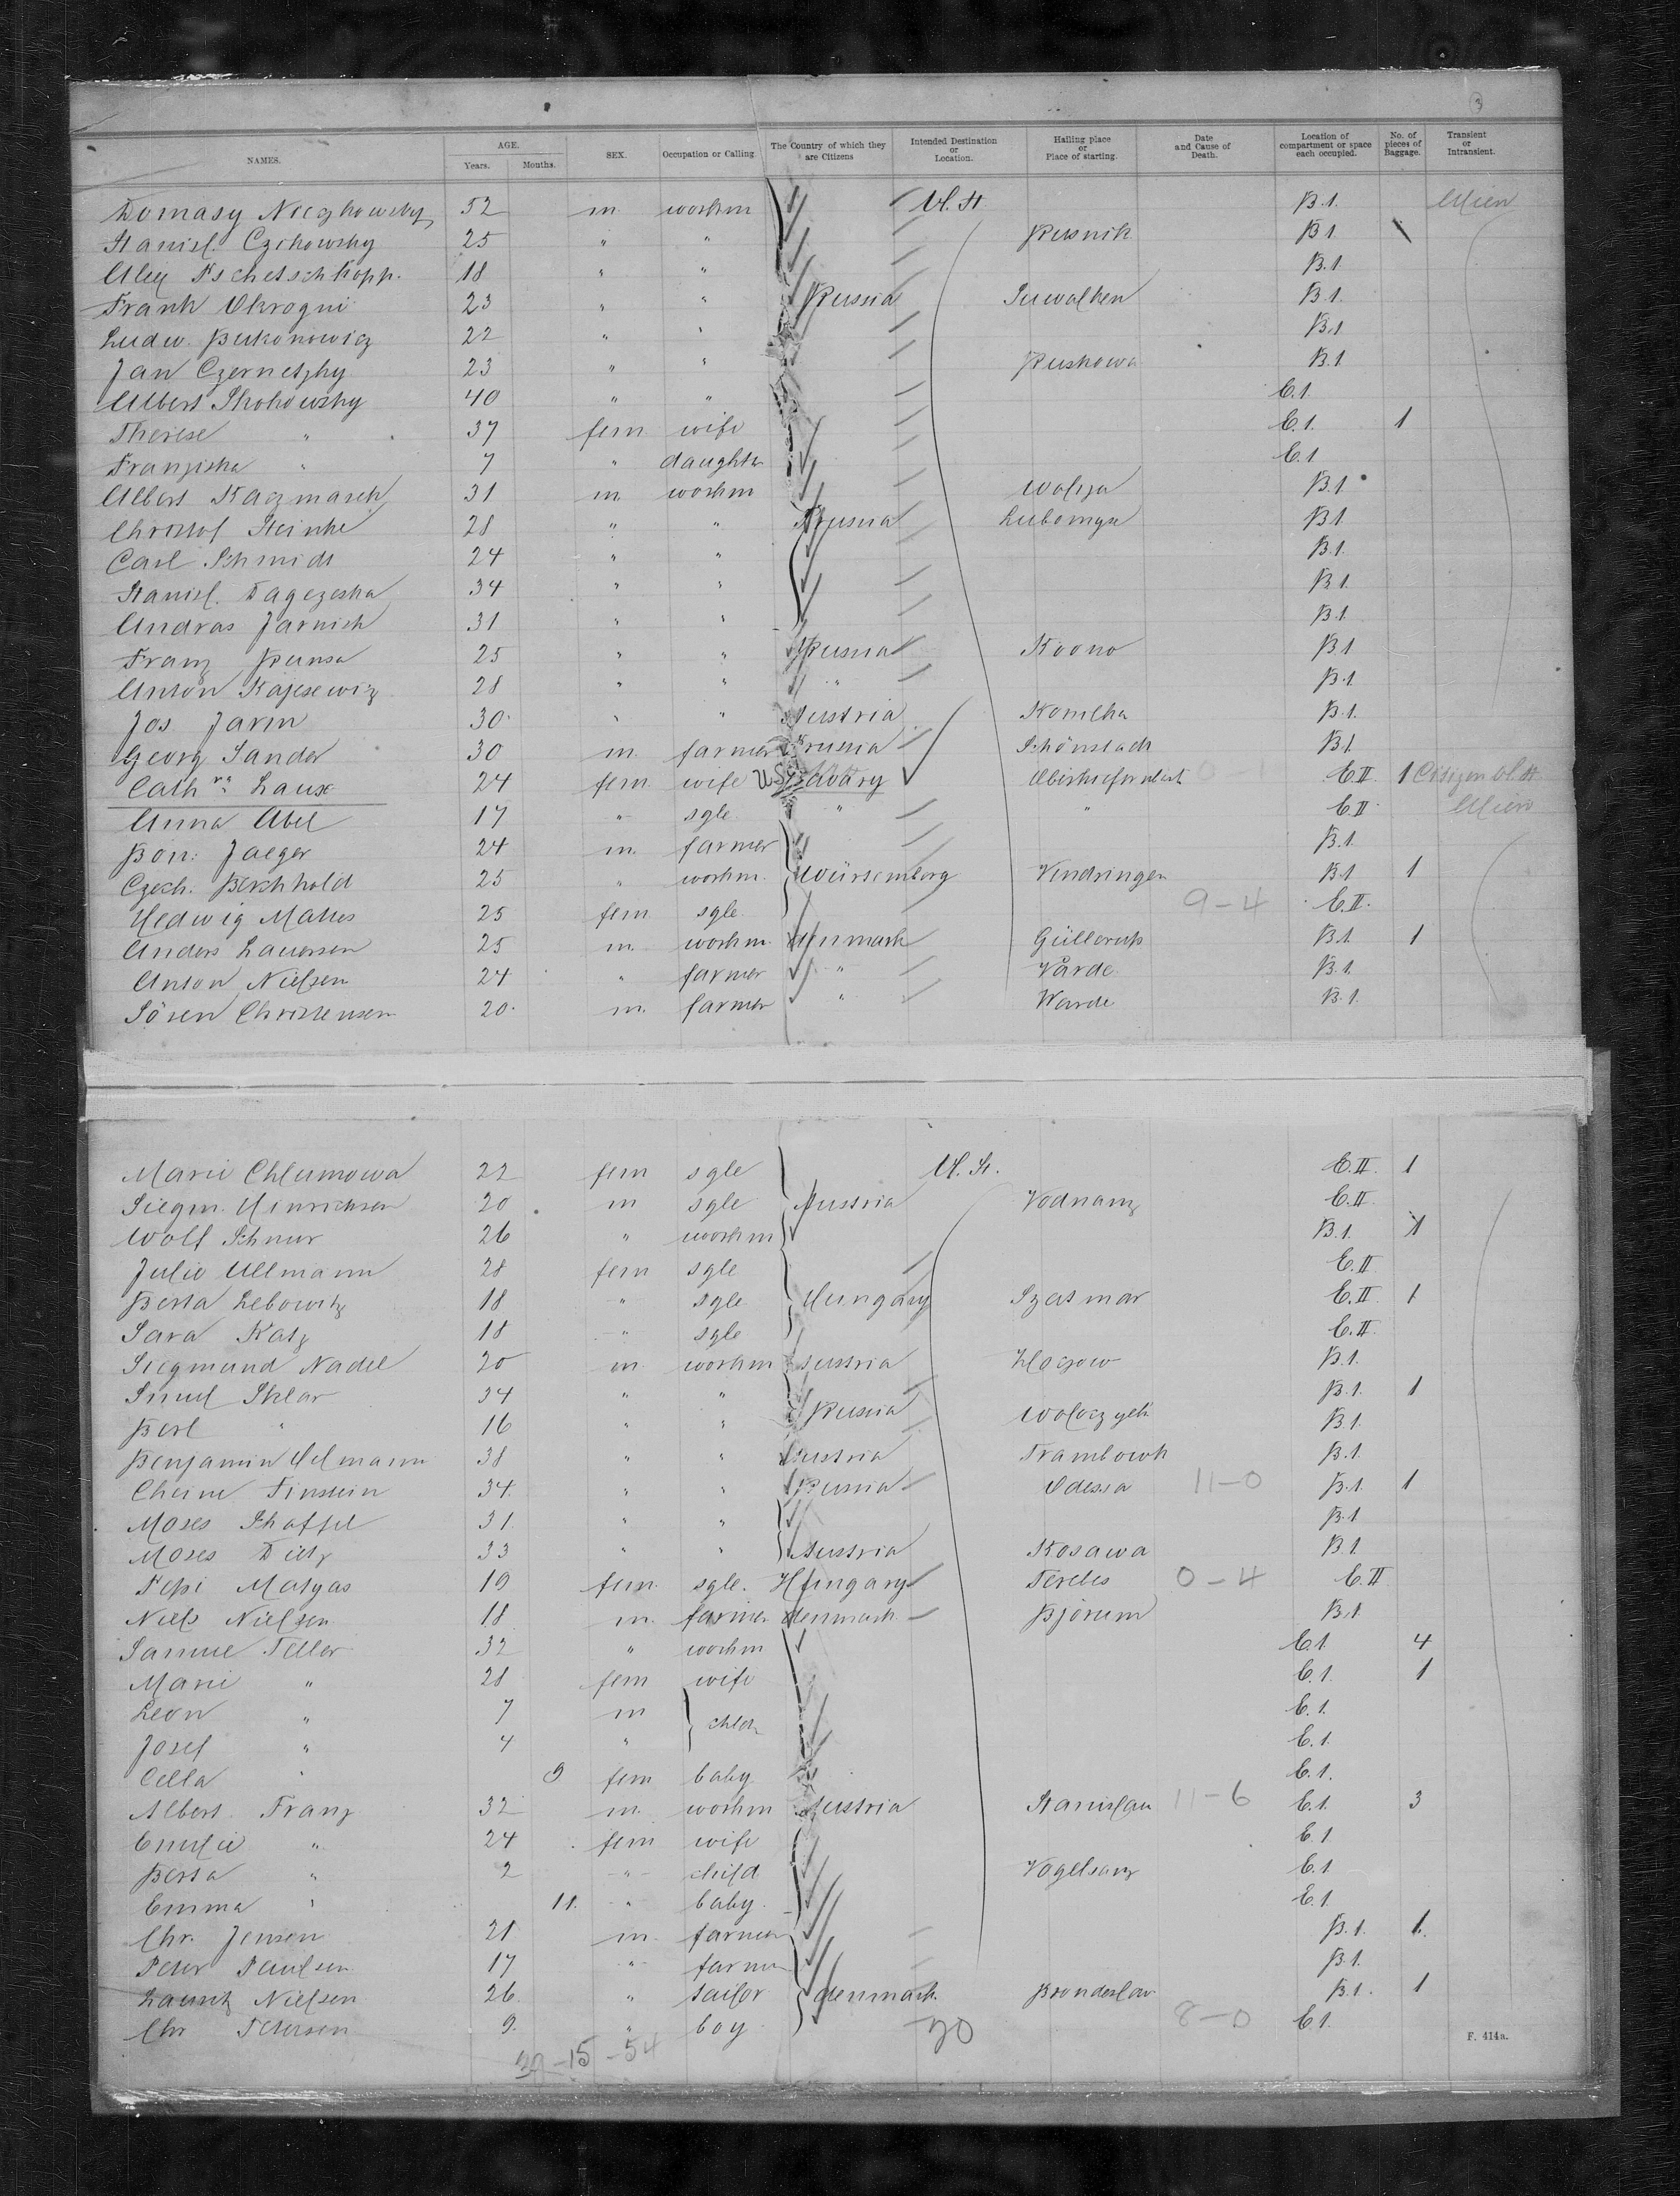 3
NAMES. AGE. Years. Months. SEX. Occupation or Calling The Country of which they are Citizens Intended Destination or Location. Hailing place or Place of starting. Date and Cause of Death. Location of compartment or space each occupied. No. of pieces of Baggage. Transient or Intransient.
Domasy 52 m workm U. St. B.1. Alien
Stanisl. Czichowsky 25 " " Rusnik B 1
18 " " B.1
Frank Okrogni 23 " " Russia Suwalken B 1.
Ludw. Bukonowicz 22 " " B.1
Jan Czernetzky 23 " " Ruskowa B.1
Albert Skokowsky 40 " " E.1.
Therese " 37 fem. wife E.1. 1
Franziska " 7 " daughter E.1
Albert Kaczmarek 31 m workm Woliza B.1
Christof Steinke 28 " " Prussia Lubomga B 1
Carl Schmidt 24 " " B.1.
Stanisl. Dagezeska 34 " " B 1.
Andras Jarnich 31 " " B.1.
Franz 25 " " Russia Koono B 1
Anton Kajesewiz 28 " " " B.1.
Jos. Jarm 30 " " Austria Komlha B.1.
Georg Sander 30 m. farmer Prussia Schönstadt B 1.
Cath.na Laux 24 fem. wife US Bavary E.II. 1 Citizen U. St.
Anna Abel 17 " sgle " " E.II. Alien
Bon. Jaeger 24 m. farmer B.1.
Czech. Berchhold 25 " workm. Würtemberg Vendringen B 1 1
Hedwig Mattes 25 fem sgle. 9-4 E.II.
Anders Lauersen 25 m. workm. Denmark Güllerup B.1. 1
Anton Nielsen 24 " farmer " Varde B.1.
Sören Christensen 20 m. farmer " Warde B.1.
Marie Chlumowa 22 fem sgle U. St. E.II. 1
Siegm. Hinrichsen 20 m sgle Austria Vodnanz E.II.
Wolf Schnur 26 " workm B.1. 1
Julie Ullmann 28 fem sgle E.II
Berta Lebowitz 18 " sgle Hungary Szatmar E.II. 1
Sara Katz 18 " sgle E.II.
Siegmund Nadel 20 m. workm Austria Zloczow B.1.
Smul Sklar 34 " " B.1. 1
Berl " 16 " " Russia Woloczyck B.1.
Benjamin Helmann 38 " " Austria Trambowk B.1.
Cheine Finstein 34. " " Russia Odessa 11-0 B.1. 1
Moses Schaffel 31 " " B.1
Moses Dietz 33 " " Austria Kosawa B.1.
Pepi Matyas 19 fem. sgle. Hungary Terebes 0-4 E.II
Niels Nielsen 18 m. farmer denmark Bjorum B.1.
Samuel Teller 32 " workm E.1. 4
Marie " 28 fem wife E.1. 1
Leon " 7 m E.1.
Josef " 4 " E.1.
Cella " 9 fem baby E.1.
Albert Franz 32 m. workm Austria Stanislau 11-6 E.1. 3
Emilie " 24 fem wife E.1
Berta " 2 " child Vogelsang E.1.
Emma " 11. " baby E.1.
Chr. Jensen 21 m. farmer B.1. 1.
Peter Paulsen 17 " farmer B.1.
Lauritz Nielsen 26. " tailor denmark. Bronderslav B.1. 1
Chr Petersen 9. " boy 8-0 E.1.
-15-54
F. 414a.